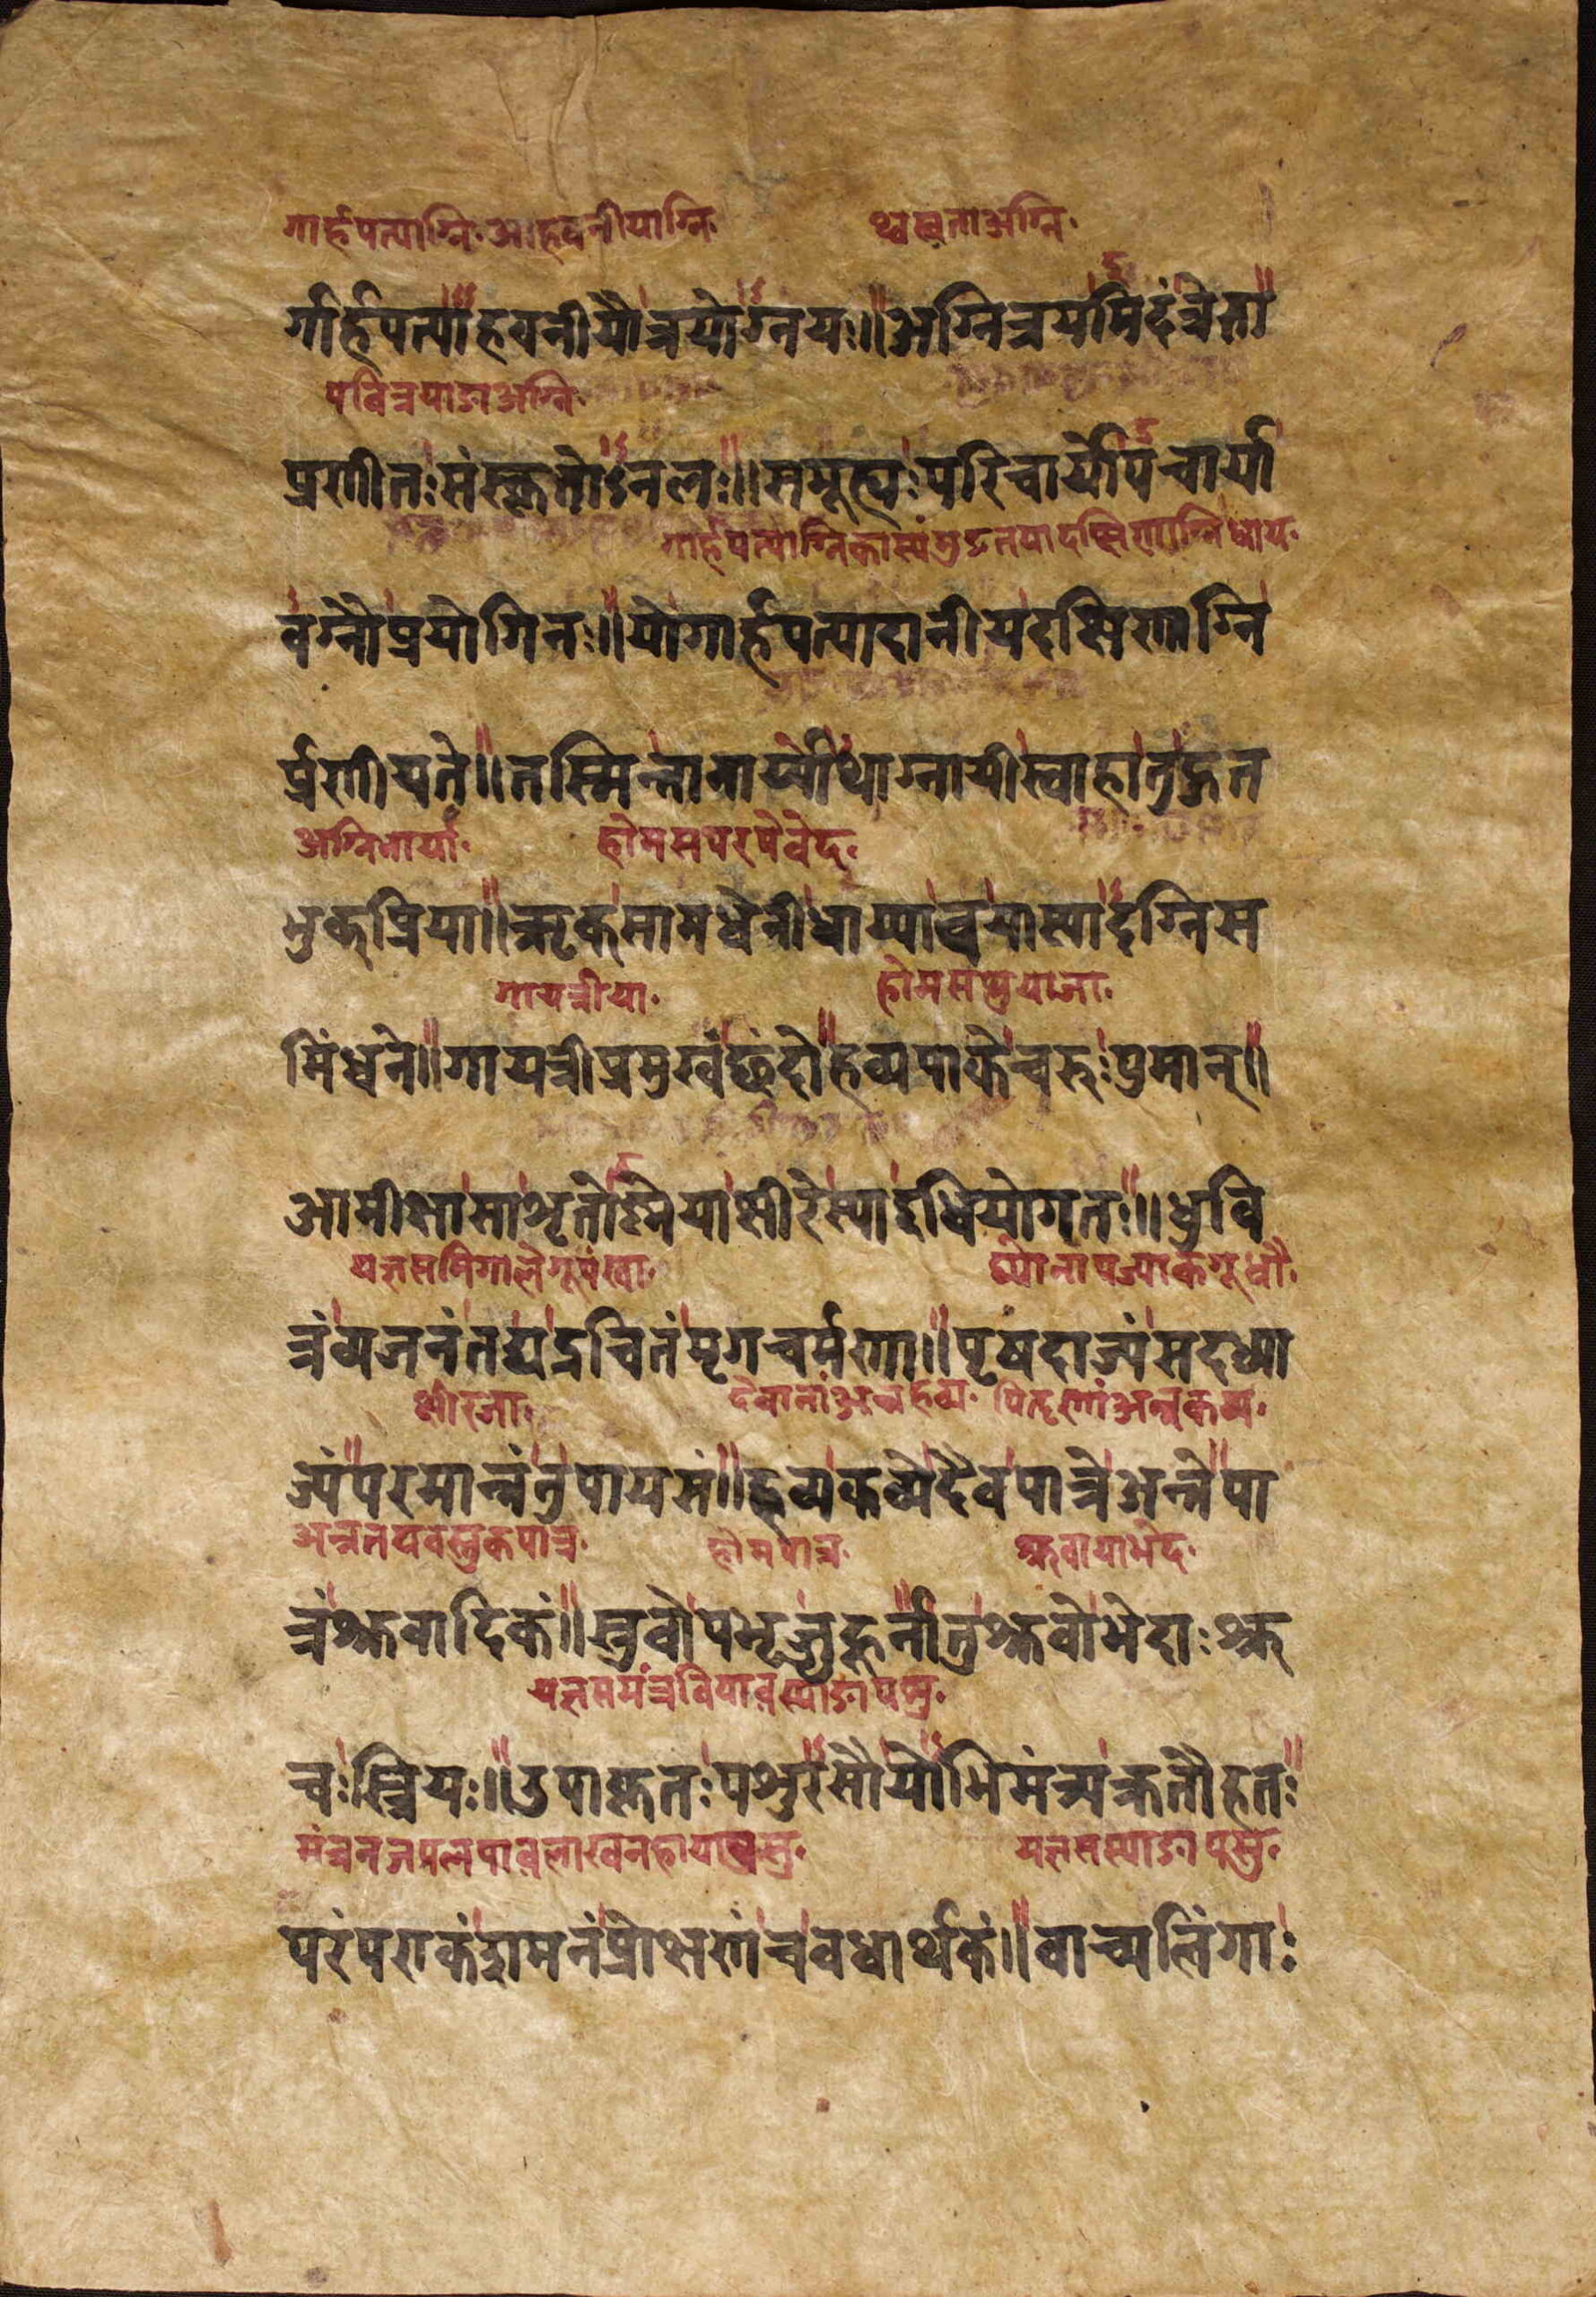 गार्हपत्याग्नि. आहवनीयाग्नि. थ्वस्वता अग्नि.
र्गार्हपत्याहवनीयौत्रयोग्नयः॥अग्नित्रयमिदंत्रेता
पवित्रयाङा अग्नि.
प्रणीतःसंस्कृतोऽनलः॥समूह्यःपरिचार्योपचार्या
गार्हपत्याग्निकास्यं दक्षिणाग्नि धाय.
वग्नौप्रयोगिनः॥योगार्हपत्यादानीयदक्षिणाग्नि
र्प्रणीयते॥तस्मिन्नानाय्योथाग्नायीस्वाहातुहुत
अग्निभार्या. होमसपरपेवेद.
भुक्प्रिया॥ऋक्सामधेनीधाय्याचयास्यादग्निस
गायत्रीया. होमस याजा.
मिंधने॥गायत्रीप्रमुखंछंदोहव्यपाकेचरुःपुमान्॥
आमीक्षासाशृतोष्मेयाक्षीरेस्याद्दधियोगतः॥ध्रुवि
यज्ञसमिगालेगूपंखा.
त्रंव्यजनंतद्यद्रचितंमृगचर्मणा॥पृषदाज्यंसदध्या
क्षीरजा. देवानांअन्नहव्य. पितृणांअन्नकव्य.
ज्यंपरमान्नंतुपायसं॥हव्यकव्येदैवपात्रेअन्नेपा
अन्नतयवस्तुकपात्र. होमपात्र. स्रुवायाभेद.
त्रंस्रुवादिकं॥ध्रुवोपभृज्जुहूर्नातुस्रुवोभेदाःस्रु
यज्ञसमंत्रवियाव स्याङापसु.
चःस्त्रियः॥उपाकृतःपशुरसौयोभिमंत्र्यक्रतौहतः
यज्ञसस्याङापसु.
परंपराकंशमनंप्रोक्षणंचवधार्थकं॥वाच्यलिंगाः